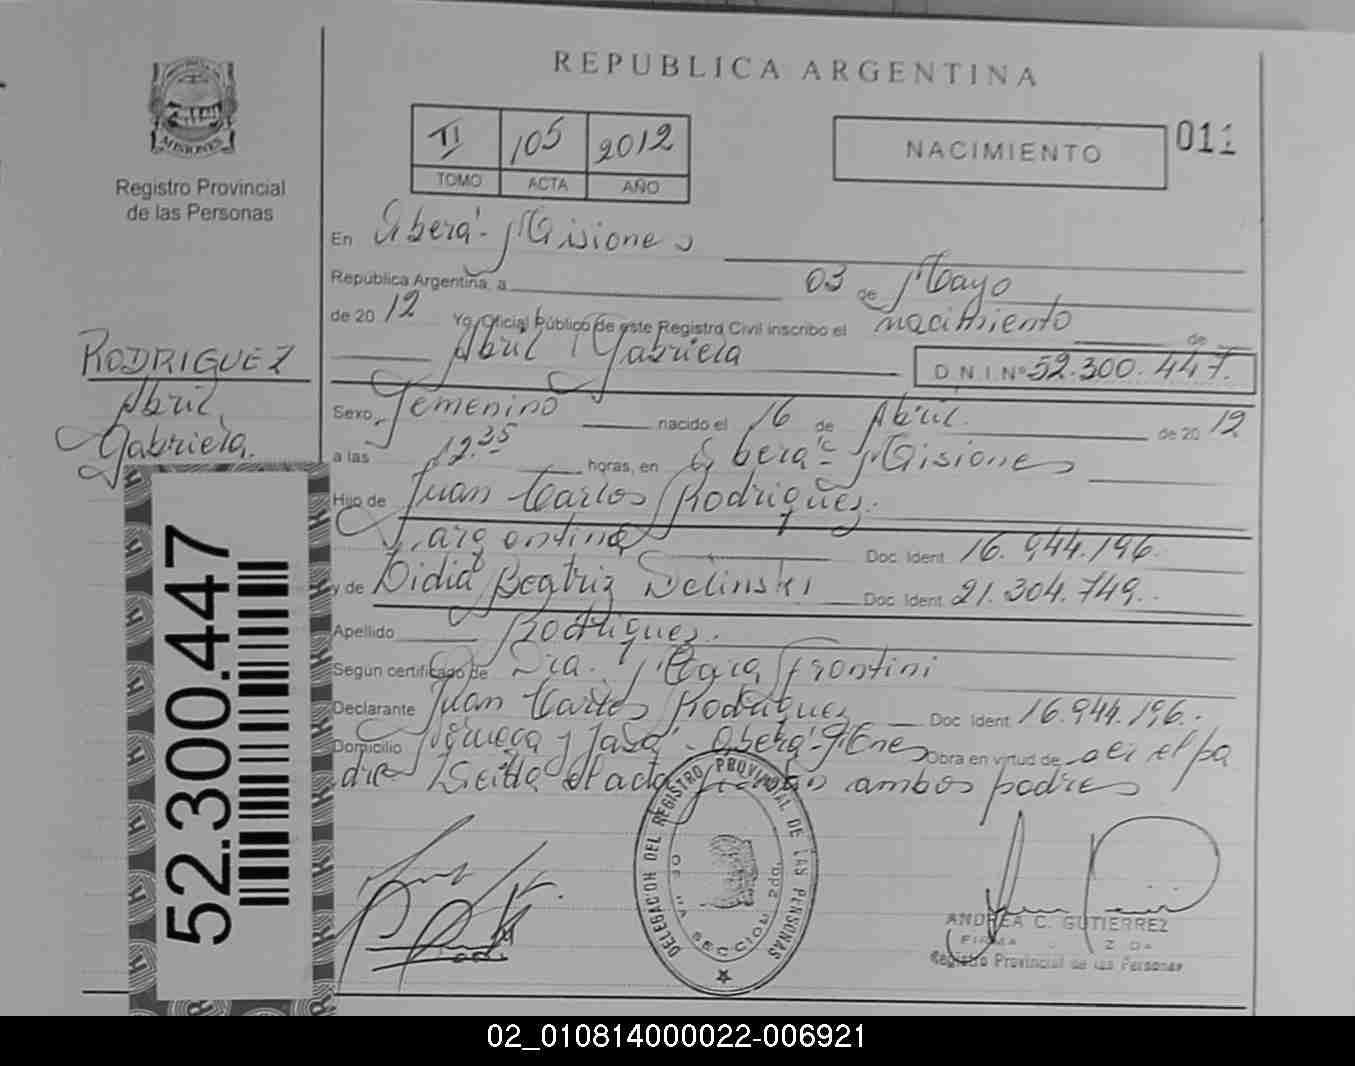 REPUBLICA ARGENTINA
MISIONES
Registro Provincial
de las Personas
TI 105 2012
TOMO ACTA AÑO
NACIMIENTO
011
En Oberá - Misiones
República Argentina, a 03 de Mayo
de 2012 Yo, Oficial Público de este Registro Civil inscribo el nacimiento de
Abril Gabriela D.N.I Nº 52.300.447.
RODRIGUEZ
Abril
Gabriela.
Sexo Femenino nacido el 16 de Abril de 2012
a las 12.35 horas, en Oberá - Misiones
Hijo de Juan Carlos Rodriguez.
argentina Doc. Ident. 16.944.196.
y de Lidia Beatriz Delinski Doc. Ident. 21.304.749.
Apellido Rodriguez.
Según certificado de Dra. Frontini
Declarante Juan Carlos Rodriguez Doc. Ident. 16.944.196.
Domicilio y Oberá - Mnes Obra en virtud de ser el pa
dre el acta ambos padres
52.300.447
DELEGACION DEL REGISTRO PROVINCIAL DE LAS PERSONAS
SECCION 2da.
ANDREA C. GUTIERREZ
Registro Provincial de las Personas
02_010814000022-006921